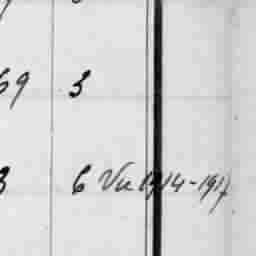 69 3
3 6 Vu 1914-1917